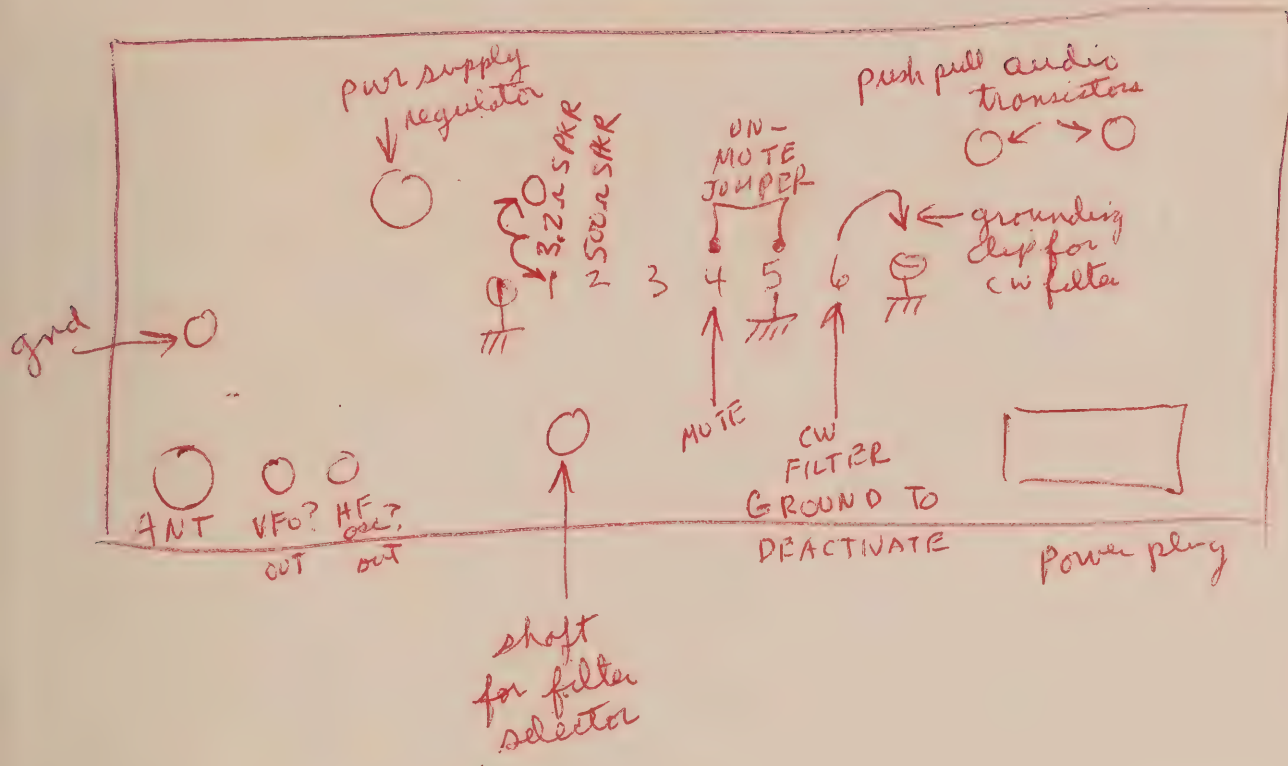 pwr supply
regulator
push pull audio
transistors
3.2Ω SPKR
500Ω SPKR
UN-
MUTE
JUMPER
grounding
clip for
CW filter
1 2 3 4 5 6
gnd
MUTE
CW
FILTER
GROUND TO
DEACTIVATE
ANT
VFO?
OUT
HF
osc?
OUT
Power plug
shaft
for filter
selector